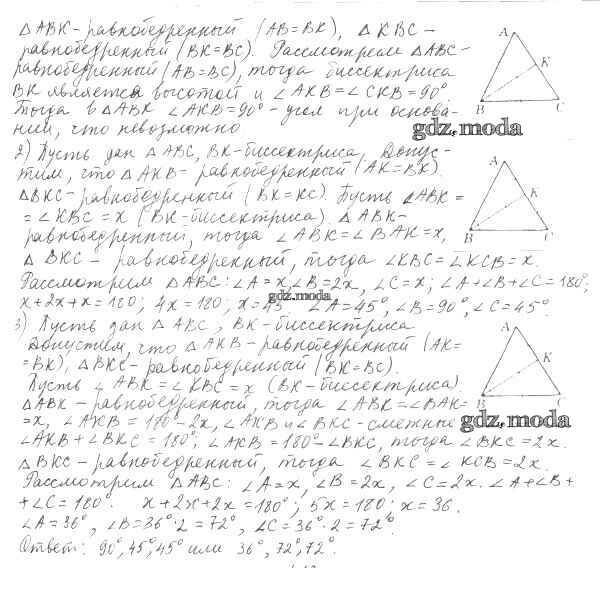 △ABK - равнобедренный (AB=BK), △KBC -
равнобедренный (BK=BC). Рассмотрели △ABC -
равнобедренный (AB=BC), тогда биссектриса
BK является высотой и ∠AKB=∠CKB=90°.
Тогда в △ABK ∠AKB=90° - угол при основа-
нии, что невозможно
A
K
B
C
gdz.moda
2) Пусть дан △ABC, BK-биссектриса. Допус-
тим, что △AKB - равнобедренный (AK=BK).
△BKC - равнобедренный (BK=KC). Пусть ∠ABK =
= ∠KBC = x (BK-биссектриса). △ABK -
равнобедренный, тогда ∠ABK=∠BAK=x,
△BKC - равнобедренный, тогда ∠KBC=∠KCB=x.
Рассмотрим △ABC: ∠A=x, ∠B=2x, ∠C=x; ∠A+∠B+∠C=180°;
x+2x+x=180; 4x=180; x=45° ∠A=45°, ∠B=90°, ∠C=45°.
A
K
B
C
gdz.moda
3) Пусть дан △ABC, BK-биссектриса
Допустим, что △AKB - равнобедренный (AK=
=BK), △BKC - равнобедренный (BK=BC).
Пусть ∠ABK=∠KBC=x (BK-биссектриса).
△ABK - равнобедренный, тогда ∠ABK=∠BAK=
=x, ∠AKB=180°-2x, ∠AKB и ∠BKC - смежные
∠AKB+∠BKC=180°, ∠AKB=180°-∠BKC, тогда ∠BKC=2x.
△BKC - равнобедренный, тогда ∠BKC=∠KCB=2x.
Рассмотрим △ABC: ∠A=x, ∠B=2x, ∠C=2x. ∠A+∠B+
+∠C=180°. x+2x+2x=180°; 5x=180; x=36.
∠A=36°, ∠B=36°·2=72°, ∠C=36°·2=72°.
Ответ: 90°, 45°, 45° или 36°, 72°, 72°.
A
K
B
C
gdz.moda